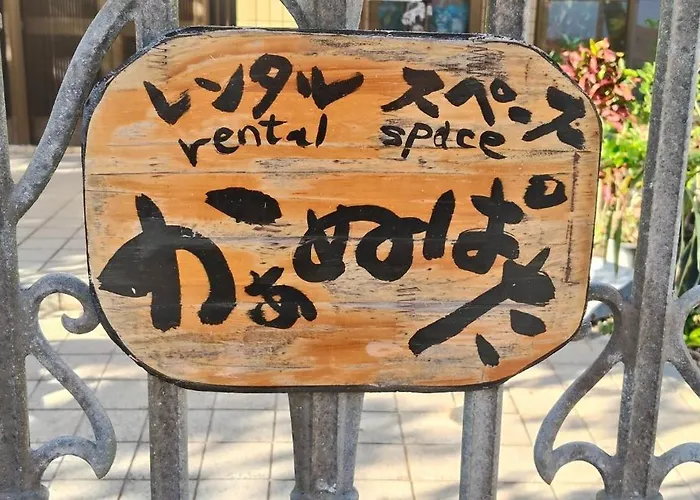 レンタル スペース
rental space
かぁぬぱた